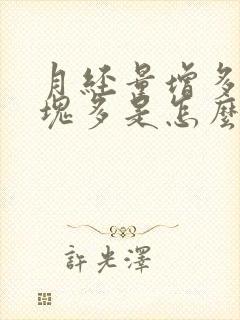 月經量增多血
塊多是怎麼
許光澤